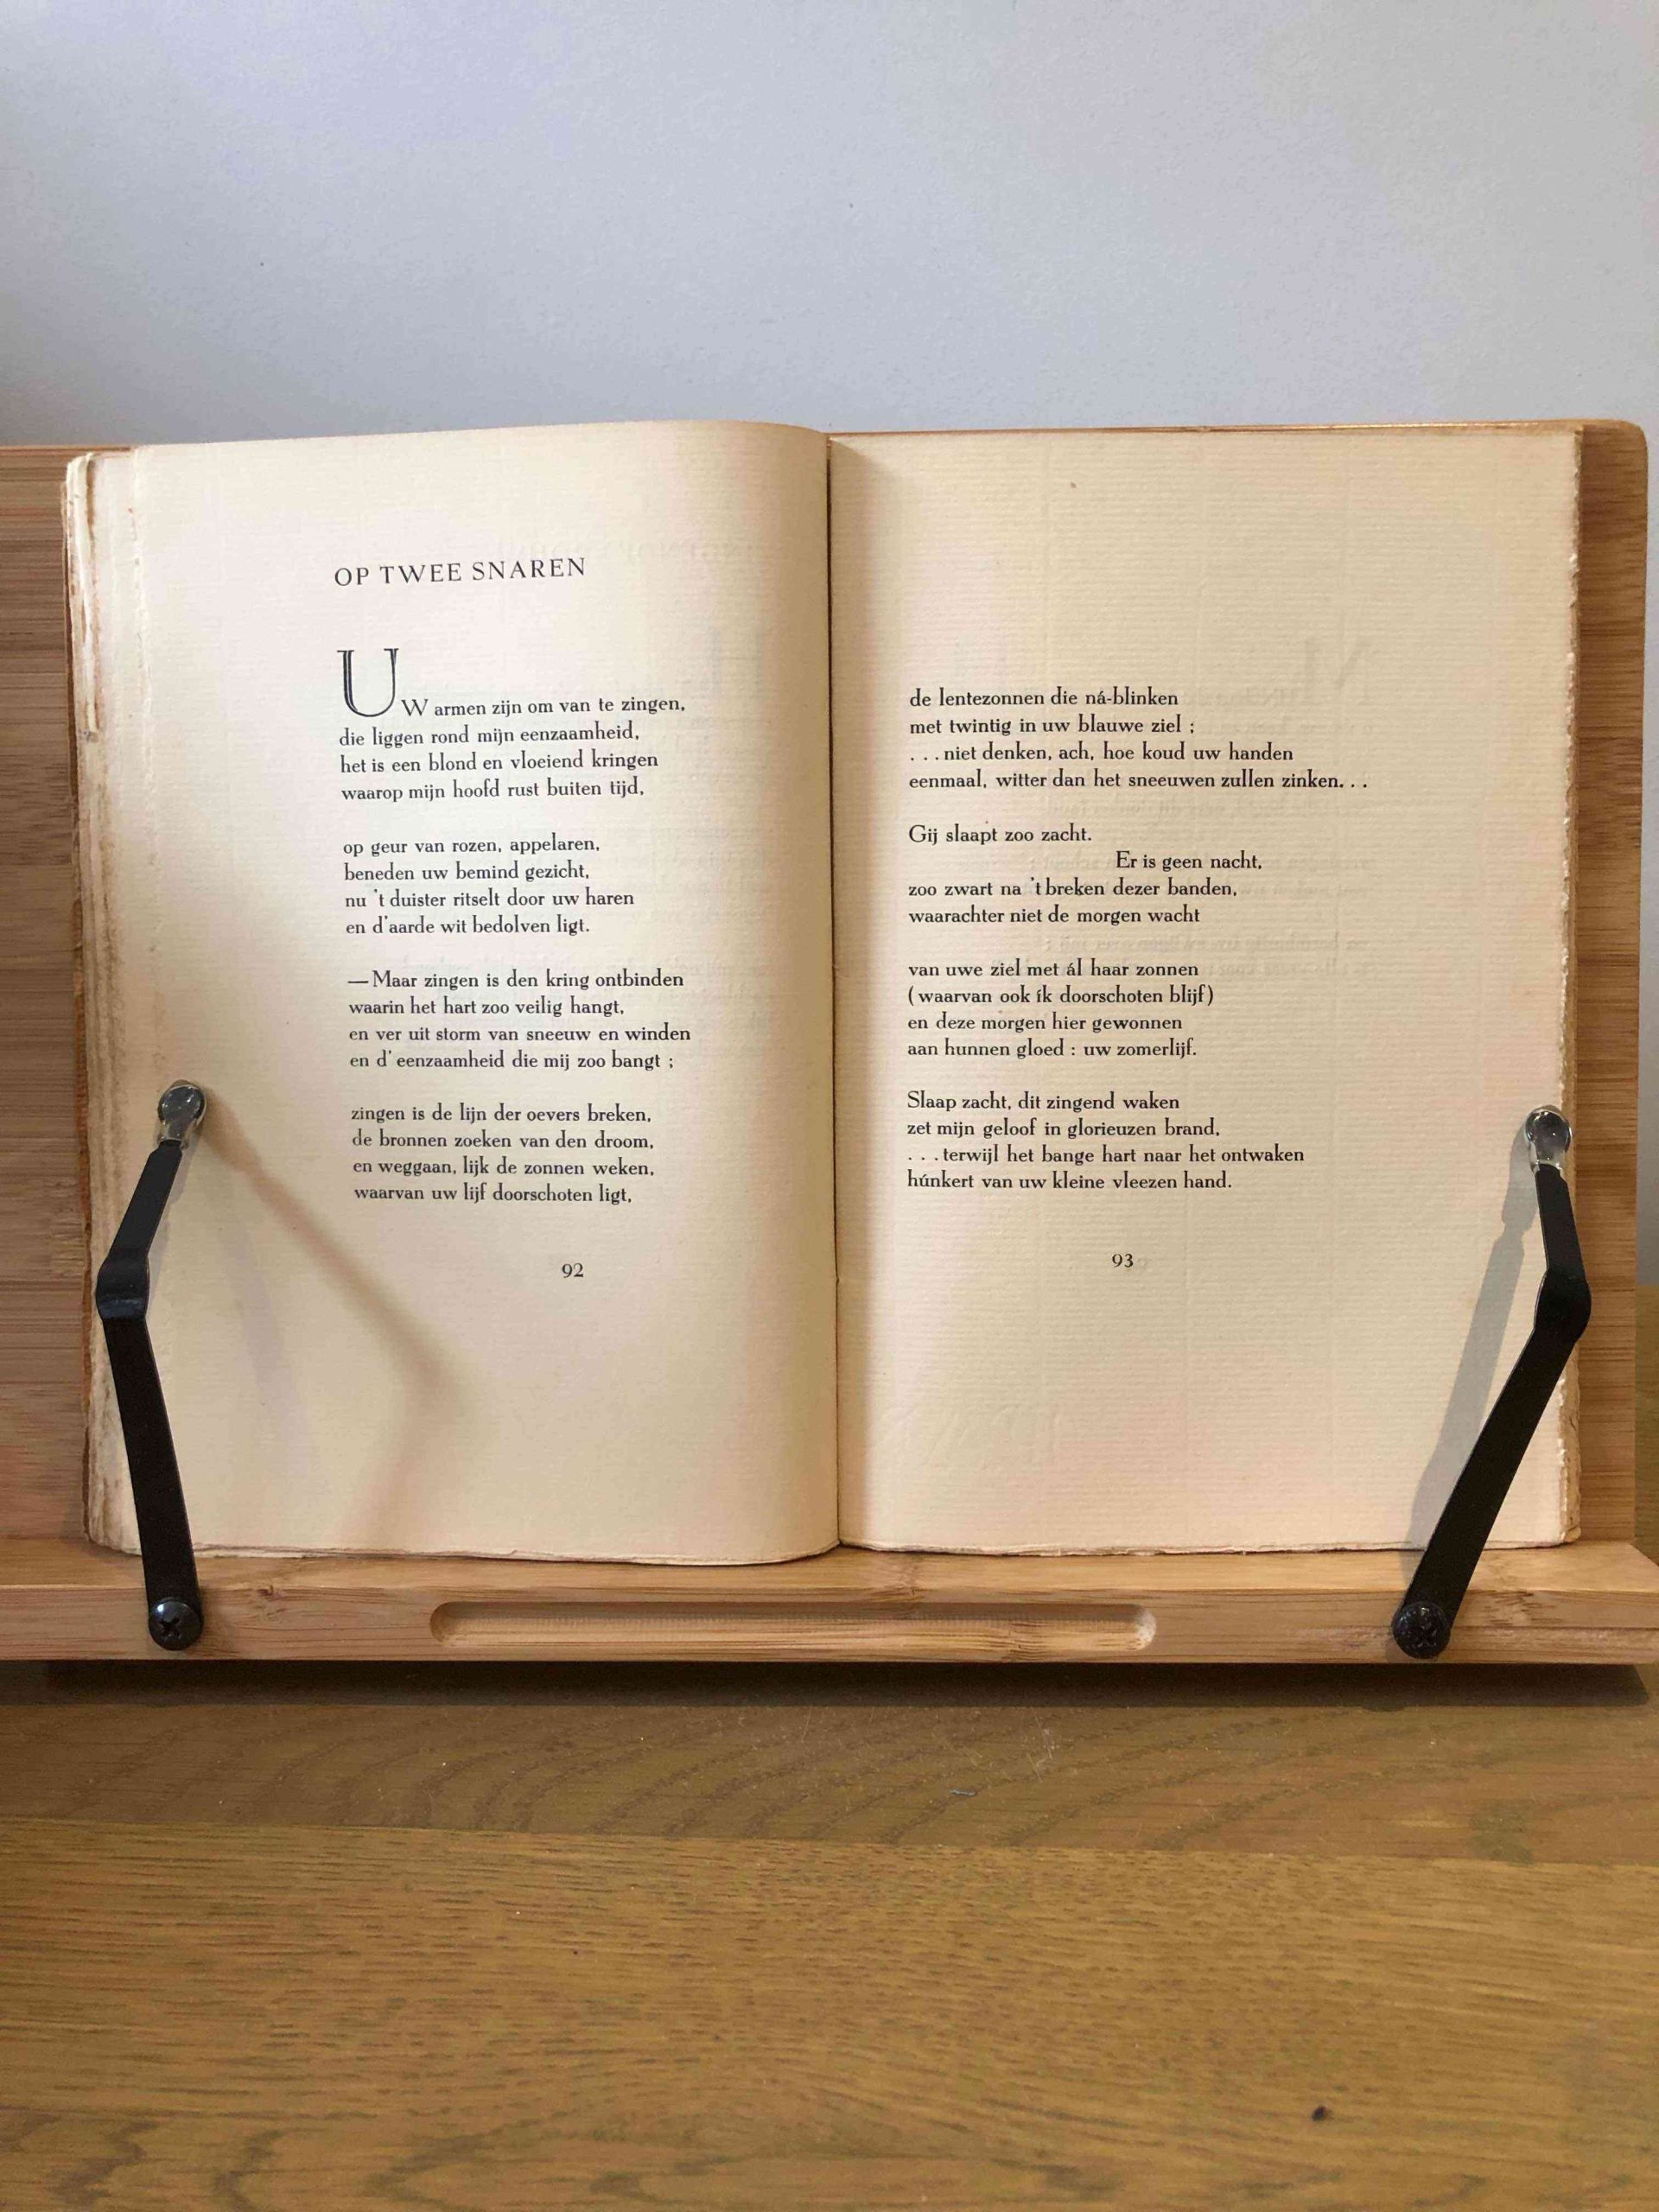 OP TWEE SNAREN
UW armen zijn om van te zingen,
die liggen rond mijn eenzaamheid,
het is een blond en vloeiend kringen
waarop mijn hoofd rust buiten tijd,
op geur van rozen, appelaren,
beneden uw bemind gezicht,
nu 't duister ritselt door uw haren
en d'aarde wit bedolven ligt.
— Maar zingen is den kring ontbinden
waarin het hart zoo veilig hangt,
en ver uit storm van sneeuw en winden
en d' eenzaamheid die mij zoo bangt ;
zingen is de lijn der oevers breken,
de bronnen zoeken van den droom,
en weggaan, lijk de zonnen weken,
waarvan uw lijf doorschoten ligt,
92
de lentezonnen die ná-blinken
met twintig in uw blauwe ziel ;
. . . niet denken, ach, hoe koud uw handen
eenmaal, witter dan het sneeuwen zullen zinken. . .
Gij slaapt zoo zacht.
Er is geen nacht,
zoo zwart na 't breken dezer banden,
waarachter niet de morgen wacht
van uwe ziel met ál haar zonnen
( waarvan ook ík doorschoten blijf )
en deze morgen hier gewonnen
aan hunnen gloed : uw zomerlijf.
Slaap zacht, dit zingend waken
zet mijn geloof in glorieuzen brand,
. . . terwijl het bange hart naar het ontwaken
húnkert van uw kleine vleezen hand.
93